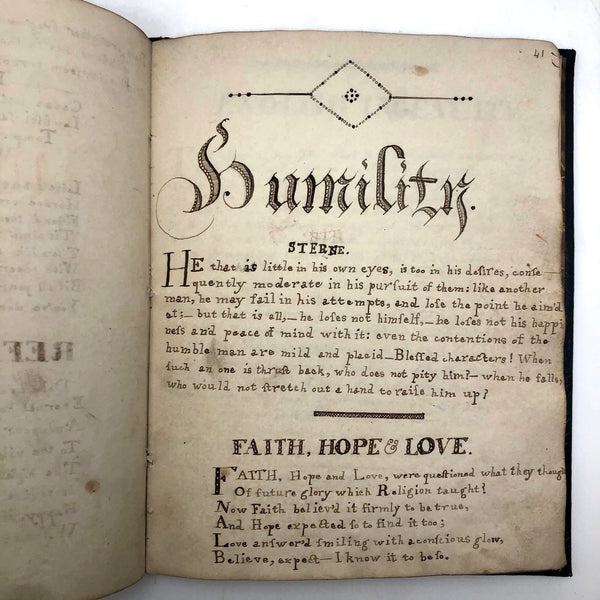 41
Humility.
STERNE.
HE that is little in his own eyes, is too in his deſires, conſe—
quently moderate in his purſuit of them: like another
man, he may fail in his attempts, and loſe the point he aim'd
at;— but that is all,— he loſes not himſelf,— he loſes not his happi
neſs and peace of mind with it: even the contentions of the
humble man are mild and placid—Bleſſed characters! When
ſuch an one is thruſt back, who does not pity him?— when he falls,
who would not ſtretch out a hand to raiſe him up?
FAITH, HOPE & LOVE.
FAITH, Hope and Love, were queſtioned what they though
Of future glory which Religion taught?
Now Faith believ'd it firmly to be true,
And Hope expected ſo to find it too;
Love anſwer'd ſmiling with a conſcious glow,
Believe, expect— I know it to be ſo.
REF